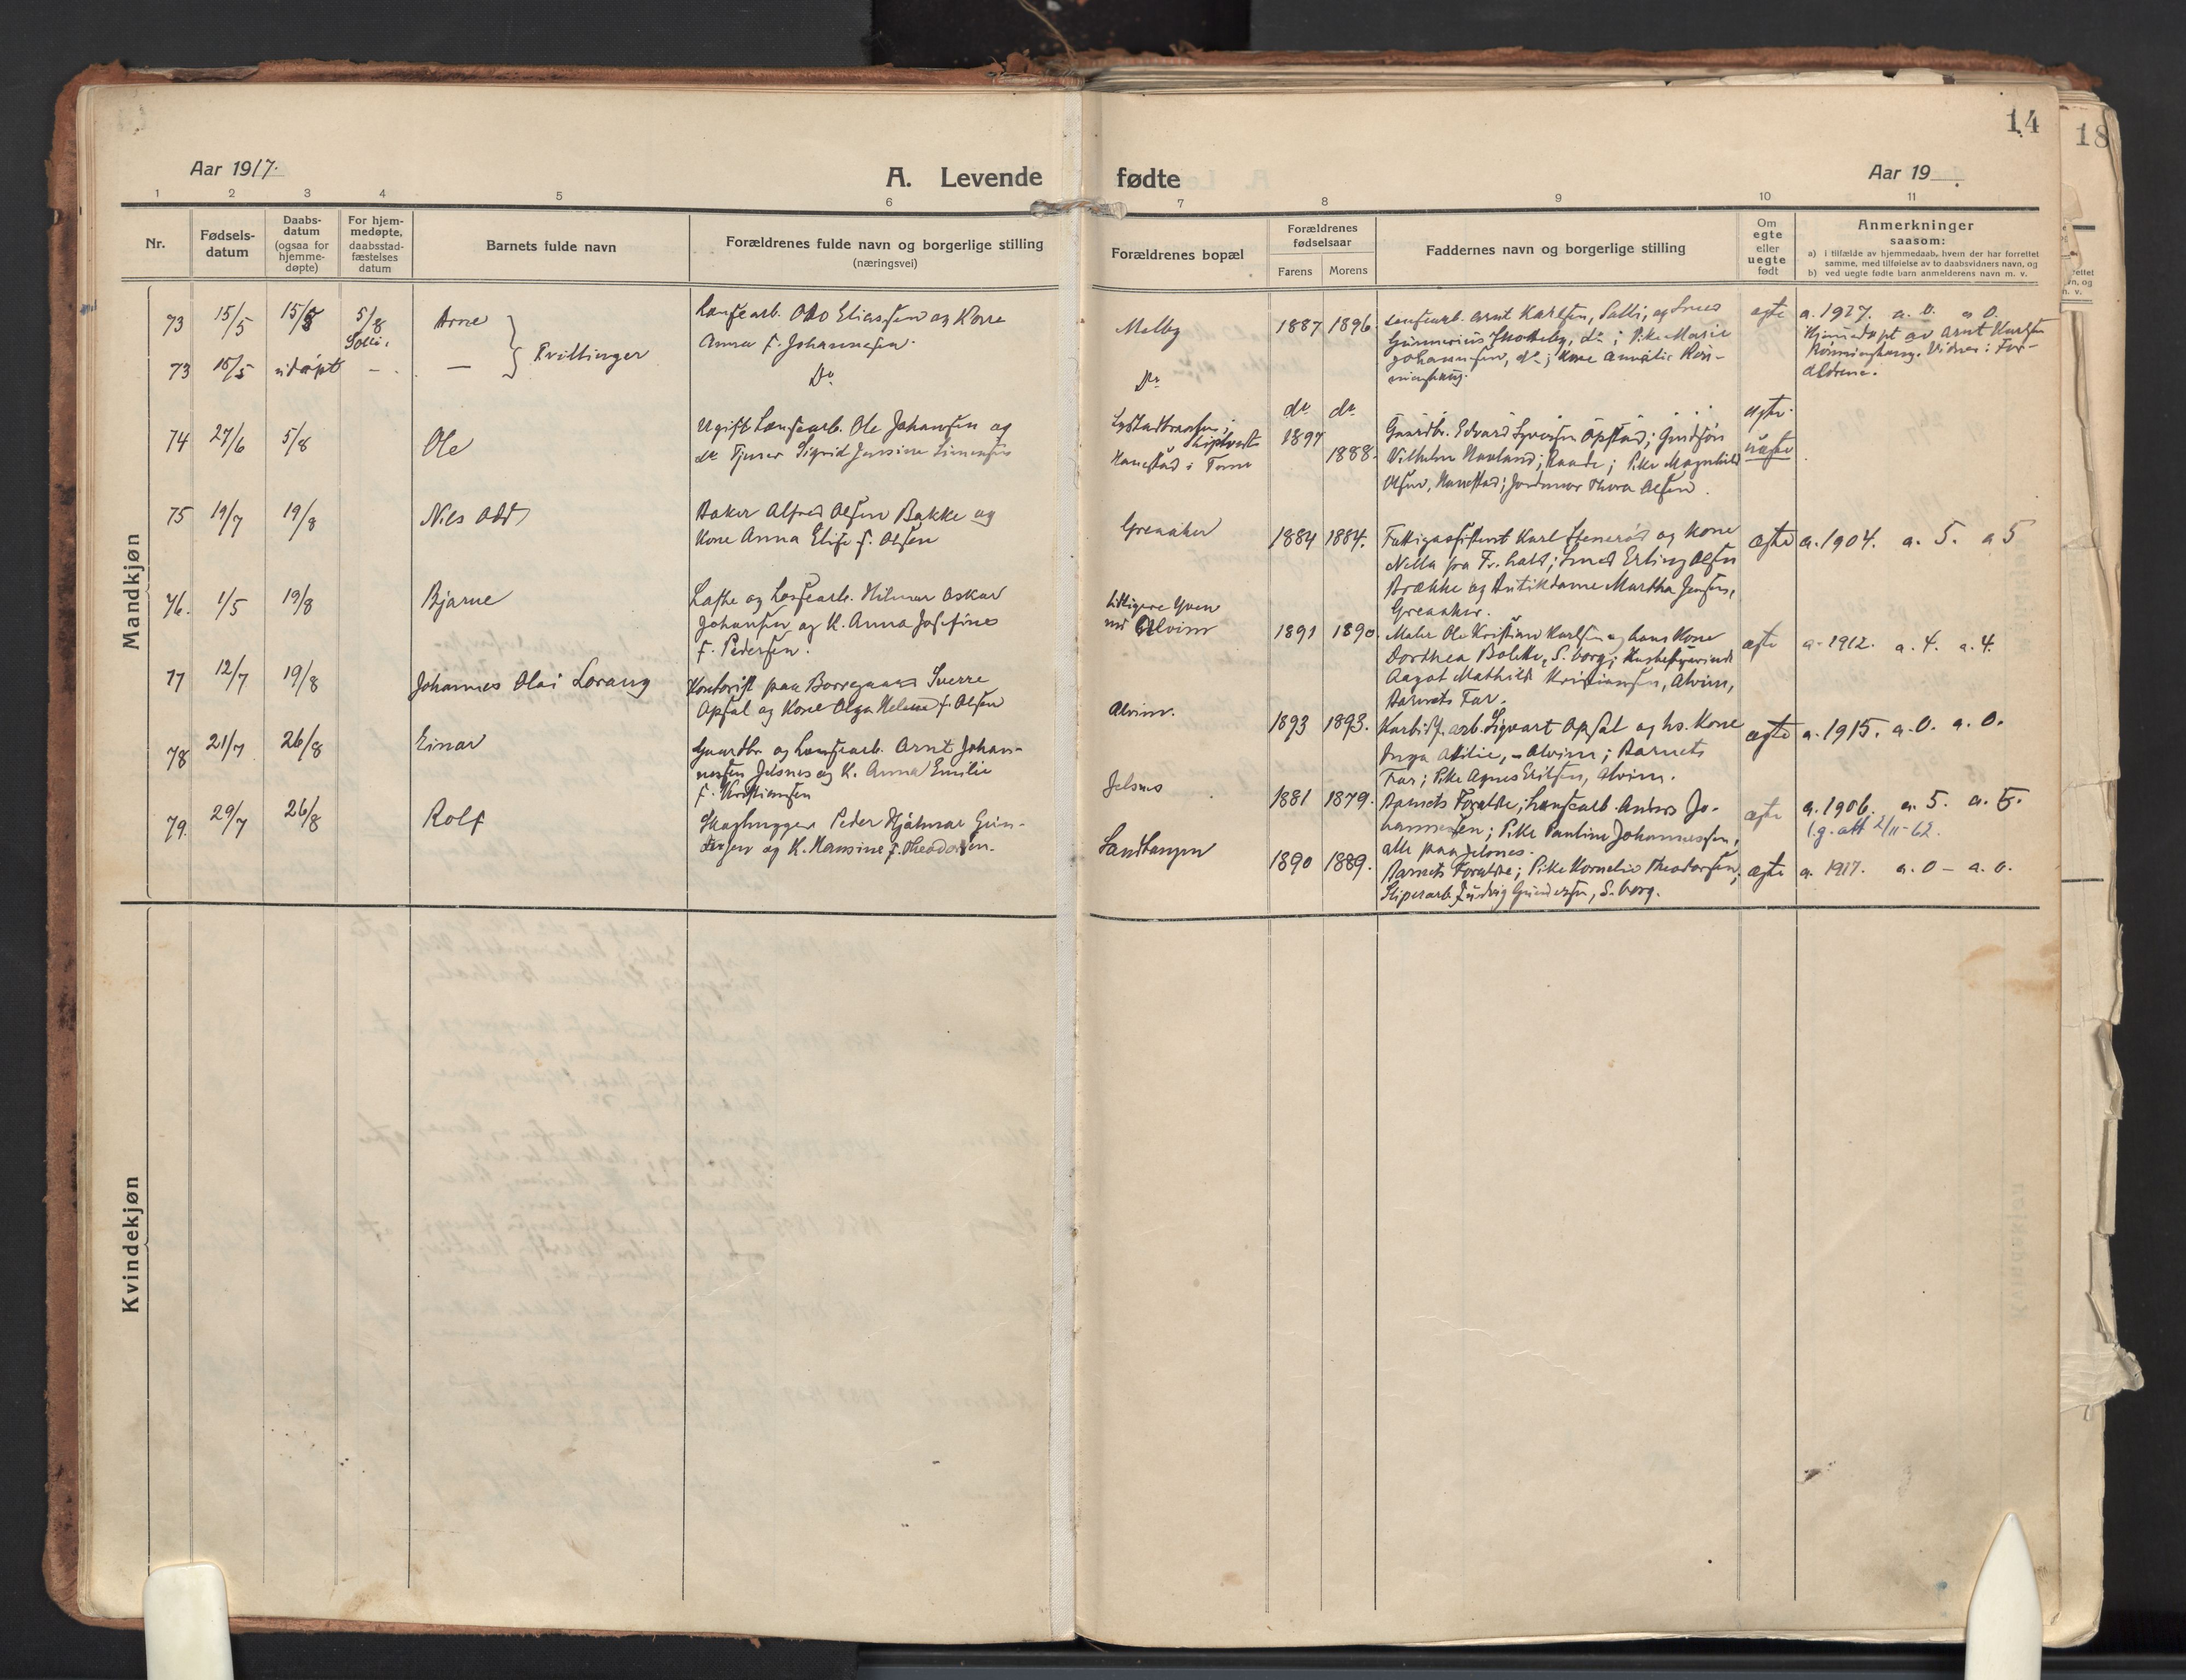 14
18
Aar 1917.
A. Levende fødte
Aar 19
1 2 3 4 5 6 7 8 9 10 11
Nr.
Fødsels-
datum
Daabs-
datum
(ogsaa for
hjemme-
døpte)
For hjem-
medøpte,
daabsstad-
fæstelses
datum
Barnets fulde navn
Forældrenes fulde navn og borgerlige stilling
(næringsvei)
Forældrenes bopæl
Forældrenes
fødselsaar
Farens Morens
Faddernes navn og borgerlige stilling
Om
egte
eller
uegte
født
Anmerkninger
saasom:
a) i tilfælde av hjemmedaab, hvem der har forrettet
samme, med tilføielse av to daabsvidners navn, og
b) ved uegte fødte barn anmelderens navn m. v.
Mandkjøn
73 15/5 15/5 5/8
Solli.
Arne
Tvillinger
Lænsearb. Otto Eliassen og Kone
Anna f. Johannesen.
Melby
1887 1896.
Lænsearb. Arnt Karlsen, Solli; og Smed
Gunnerius Skotteby, do; Pike Marie
Johannesen, do; Kone Amalie Røn-
ninghaug.
egte
a. 1927. a. 0. a 0.
Hjemmedøpt av Arnt Karlsen
Rønninghaug. Vidner: For-
ældrene.
73 15/5 udøpt - . —
Do
Do
do do
egte.
74 27/6 5/8
Ole
Ugift Lænsearb. Ole Johansen og
do Tjener Sigrid Jensine Simensen
Skiptvedt
Hanestad i Tune
1897
1888.
Gaardbr. Edvard Syversen Opstad; Gaardsjon
Vilhelm Navland, Raade; Pike Magnhild
Olsen, Hanestad; Jordmor Thora Olsen.
uegte
75 19/7 19/8
Nils Odd
Baker Alfred Olsen Bakke og
Kone Anna Elise f. Olsen
Greaaker
1884 1884.
Fattigassistent Karl Stenerød og Kone
Nella fra Fr.hald; Smed Erling Olsen
Brække og Butikdame Martha Jensen,
Greaaker.
egte
a. 1904. a. 5. a 5
76. 1/5 19/8
Bjarne
Laste og Losearb. Hilmar Oskar
Johansen og K. Anna Josefine
f. Pedersen.
Tidligere Yven
nu Alvim
1891 1890.
Maler Ole Kristian Karlsen og hans Kone
Dorthea Bolette, S.borg; Husbestyrerinde
Aagot Mathilde Kristiansen, Alvim,
Barnets Far.
egte
a. 1912. a. 4. a. 4.
77 12/7 19/8
Johannes Olai Lorang
Kontorist paa Borregaard Sverre
Opsal og Kone Olga Helene f. Olsen
Alvim.
1893 1893.
Karbidf.arb. Sigvart Opsal og hs. Kone
Inga Otilie, - Alvim; Barnets
Far; Pike Agnes Eriksen, Alvim.
egte
a. 1915. a. 0. a. 0.
78 21/7 26/8
Einar
Gaardbr. og Lænsearb. Arnt Johan-
nessen Jelsnes og K. Anna Emilie
f. Kristiansen
Jelsnes
1881 1879.
Barnets Forældre; Lænsearb. Anders Jo-
hannessen; Pike Pauline Johannessen,
alle paa Jelsnes.
egte
a. 1906. a. 5. a. 5.
l.g. att 2/11-62.
79. 29/7 26/8
Rolf
Skoghugger Peder Hjalmar Gun-
dersen og K. Hansine f. Theodorsen.
Sandtangen
1890 1889.
Barnets Forældre; Pike Kornelie Theodorsen;
Sliperarb. Ludvig Gundersen, S.borg.
egte
a. 1917. a. 0 - a. 0.
Kvindekjøn